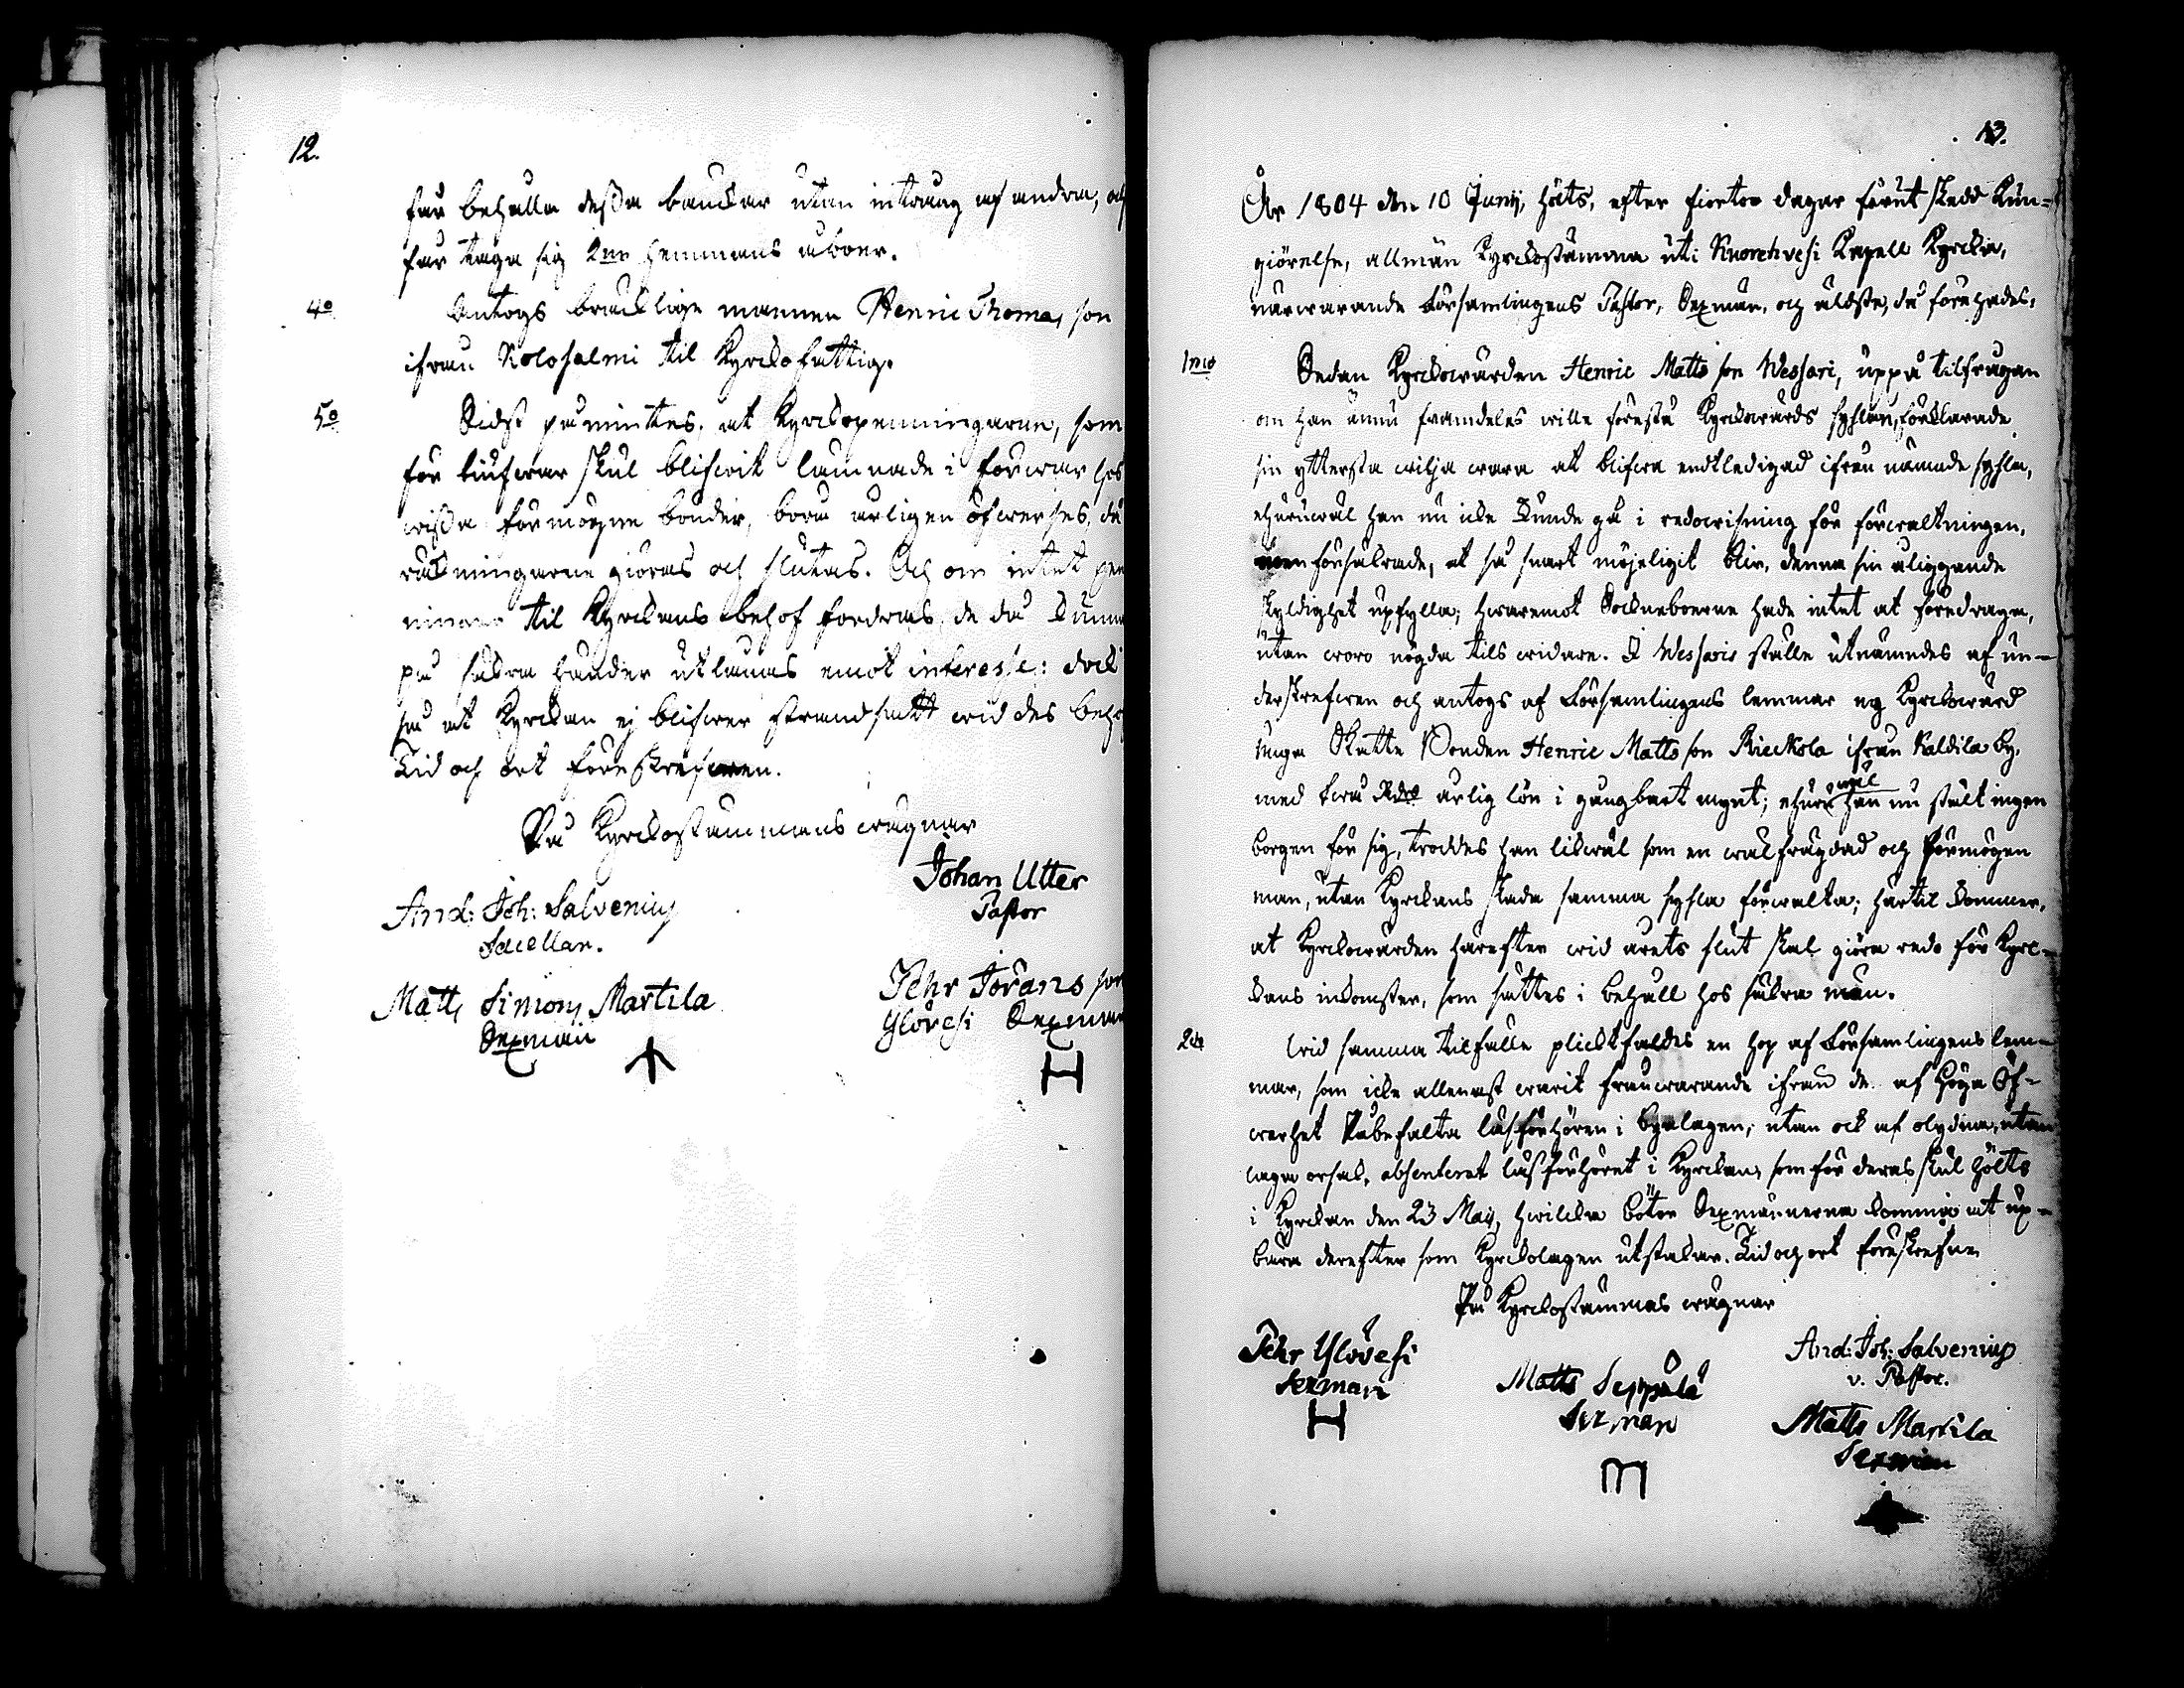 12.
får behålla deßa bänckar utan intrång af andra, och
får taga sig 2ne Hemmans åboer.
4o Antogs bräcklige mannen Henric Thomas son
ifrån Kolosalmi til Kyrckofattig.
5o Sidst påmintes, at Kyrckopenningarne, som
för tiufwar skul blifwit lämnade i förwar hos
wißa förmögne bönder, böra årligen öfwerses, då
räckningarne giöras och slutas. Och om intet pen
ningar til Kyrckans behof fordras, de då kunna
på säkra händer utlånas emot interesse: dock
så at Kyrckan ej blifwer strandsatt wid des behof
Tid och ort föreskrefwen.
På Kyrckostämmans wägnar
Johan Utter
Pastor
And: Joh: Salvenius
Sacellan.
Matts Simons Martila
Sexman
Pehr Jörans son
Ylövesi Sexman
13.
År 1804 den 10 Junij, hölts, efter fiorton dagar förut skedd Kun-
giörelse, allmän Kyrckostämma uti Kuorehvesi Kapell Kyrcka,
närwarande Församlingens Pastor, Sexmän, och äldste, då förehades:
1mo Sedan Kyrckowärden Henric Matts son Wessari, uppå tilfrågan
om han ännu framdeles wille förestå Kyrckowärds sysslan, förklarade
sin yttersta wilja wara at blifwa entledigad ifrån nämde syssla,
ehuruwäl han nu icke kunde gå i redowisning för förwaltningen,
men försäkrade, at så snart möjeligit blir, denna sin åliggande
skyldighet upfylla; hwaremot Sockneboerne hade intet at föredraga,
utan woro nögda tils widare. I Wessaris ställe utnämdes af un-
derskrefwen och antogs af Församlingens lemmar ny Kyrckowärd
unga Skatte Bonden Henric Matts son Rieckola ifrån Kaldila by,
med twå Rdr årlig lön i gångbart mynt; ehuruwäl han nu stält ingen
borgen för sig, troddes han likwäl som en wälfrägdad och förmögen
man, utan Kyrckans skada samma syssla förwalta; härtil kommer,
at Kyrckowärden härefter wid årets slut skal giöra redo för Kyrc-
kans inkomster, som sättes i behåll hos säkra män.
2do Wid samma tilfälle plicktfäldes en hop af Församlingens lem-
mar, som icke allenast warit frånwarande ifrån de af Höga Öf-
werhet Påbefalta läsförhören i byalagen, utan ock af olydna, utan
laga orsak, absenterat läsförhöret i Kyrckan, som för deras skul hölts
i Kyrckan den 23 Maij, hwilcka böter Sexmännerna komma at up-
bära derefter som Kyrckolagen utstakar. Tid och ort föreskrefne
På Kyrckostämmas wägnar
Pehr Ylövesi
Sexman
Matts Seppälä
Sexman
And: Joh: Salvenius
v. Pastor.
Matts Martila
Sexman